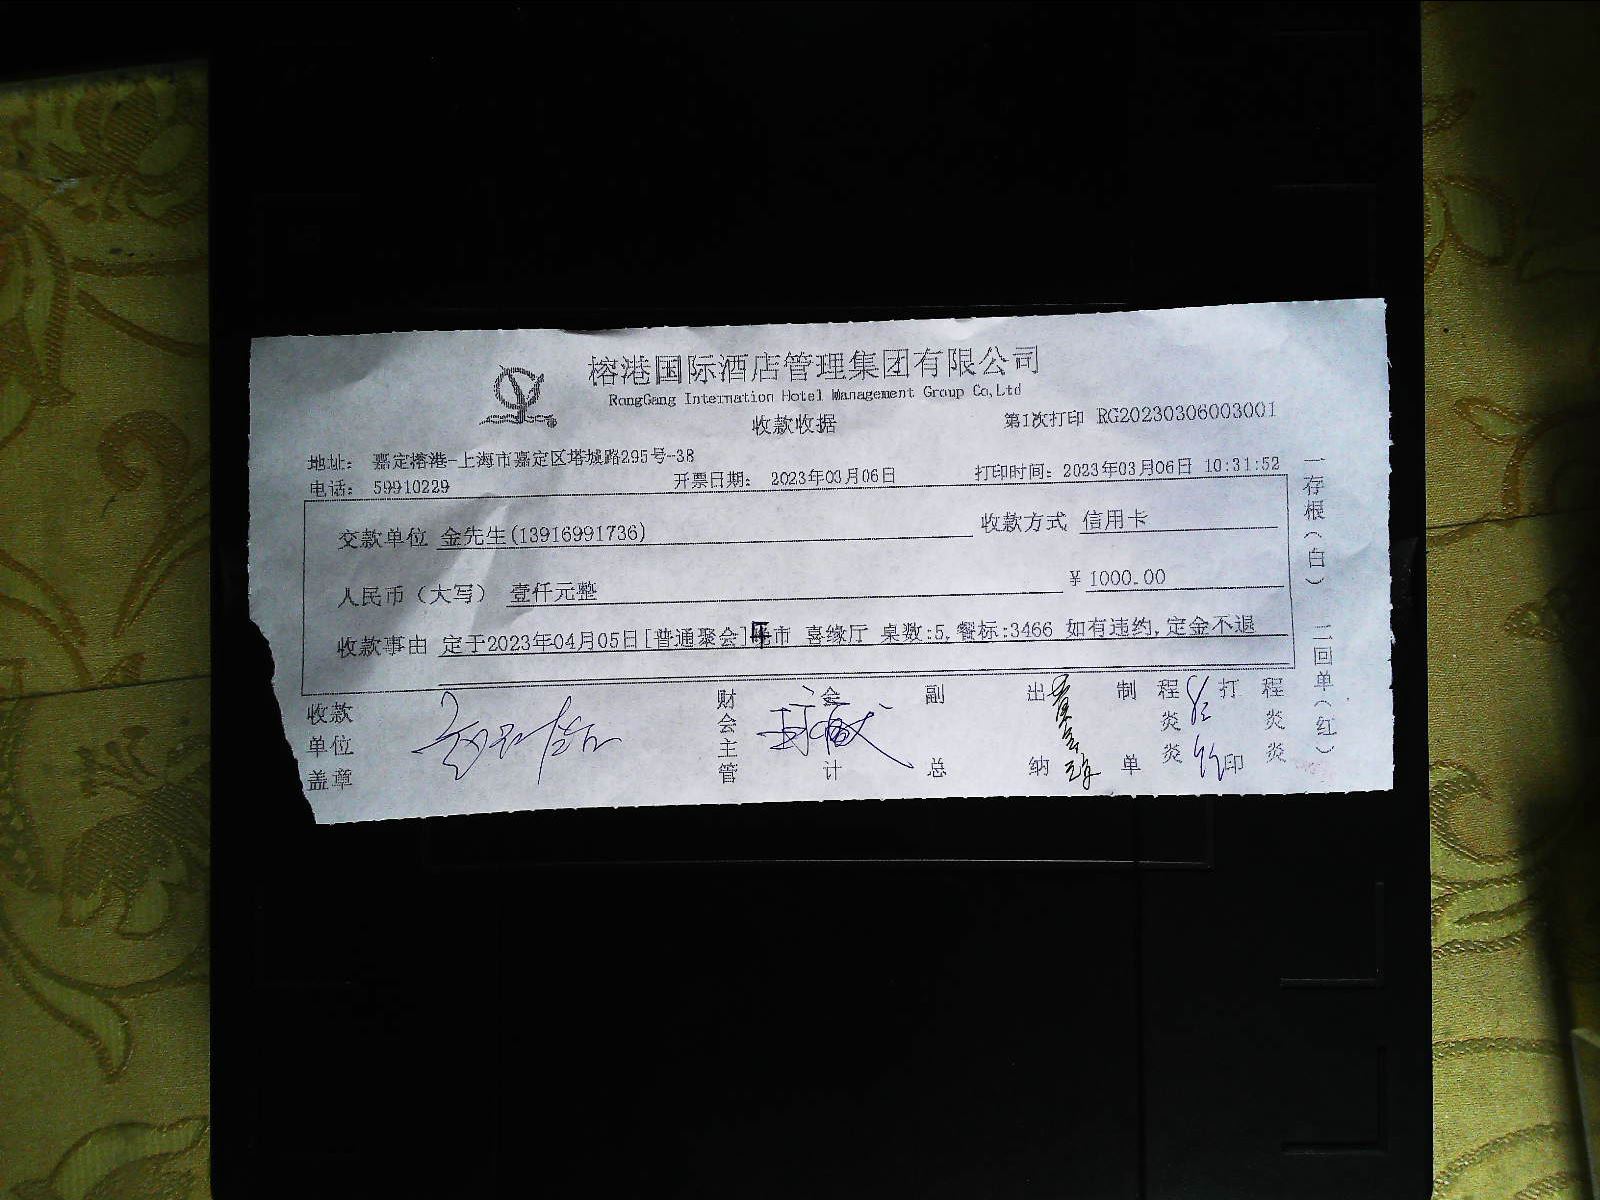 榕港国际酒店管理集团有限公司
RongGang Internation Hotel Management Group Co,Ltd
收款收据
第1次打印 RG20230306003001
地址： 嘉定榕港-上海市嘉定区塔城路295号-38
电话： 59910229 开票日期： 2023年03月06日 打印时间：2023年03月06日 10:31:52
交款单位 金先生(13916991736) 收款方式 信用卡
人民币（大写） 壹仟元整 ￥ 1000.00
收款事由 定于2023年04月05日[普通聚会]市 喜缘厅 桌数:5,餐标:3466 如有违约,定金不退
收款单位盖章
财会主管
会计
副总
出纳
制单 程炎炎
打印 程炎炎
一存根（白） 二回单（红）